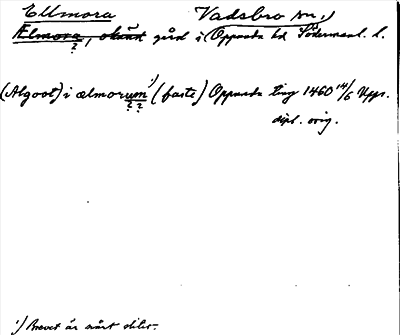 Ellmora Vadsbro sn.,
Ælmora, okänd gård i Oppunda hd Södermanl. l.
?
(Algoot) i ælmorum ¹) (faste) Oppunda ting 1460 14/6 Upps.
? ?
dipl. orig.
¹) Brevet är svårt slitet.